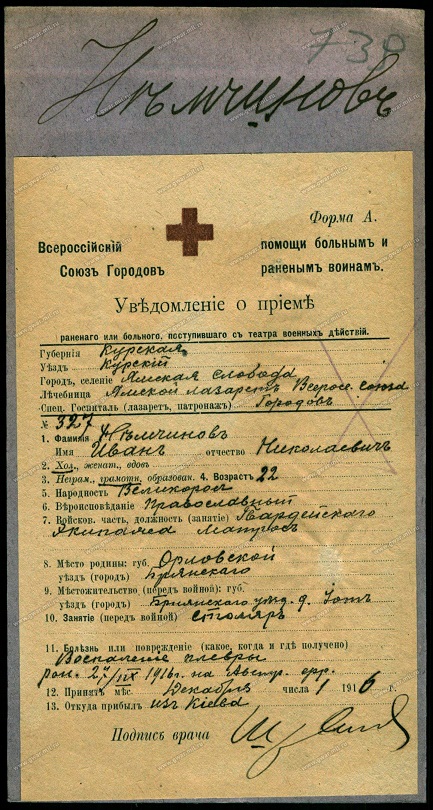 730
Нѣмчиновъ
Форма А.
Всероссійскій помощи больнымъ и
Союзъ Городовъ раненымъ воинамъ.
Увѣдомленіе о пріемѣ
раненаго или больного, поступившаго съ театра военныхъ дѣйствій.
Губернія Курская
Уѣздъ Курскій
Городъ, селеніе Ямская слобода
Лѣчебница Ямской лазаретъ Всерос. союза
Спец. Госпиталь (лазаретъ, патронажъ) Городовъ
№ 327
1. Фамилія Нѣмчиновъ
Имя Иванъ отчество Николаевичъ
2. Хол., женат., вдовъ
3. Неграм., грамотн, образован. 4. Возрастъ 22
5. Народность Великоросъ
6. Вѣроисповѣданіе Православный
7. Войсков. часть, должность (занятіе) Гвардейскаго
Экипажа Матросъ
8. Мѣсто родины: губ. Орловской
уѣздъ (городъ) Брянскаго
9. Мѣстожительство (передъ войной): губ.
уѣздъ (городъ) Брянскаго уѣзд. д.
10. Занятіе (передъ войной) столяръ
11. Болѣзнь или поврежденіе (какое, когда и гдѣ получено)
Воспаленіе плевры
27/ 1916г. на Австр.
12. Принятъ мѣс. Декабрь числа 1 1916 г.
13. Откуда прибылъ изъ Кіева
Подпись врача